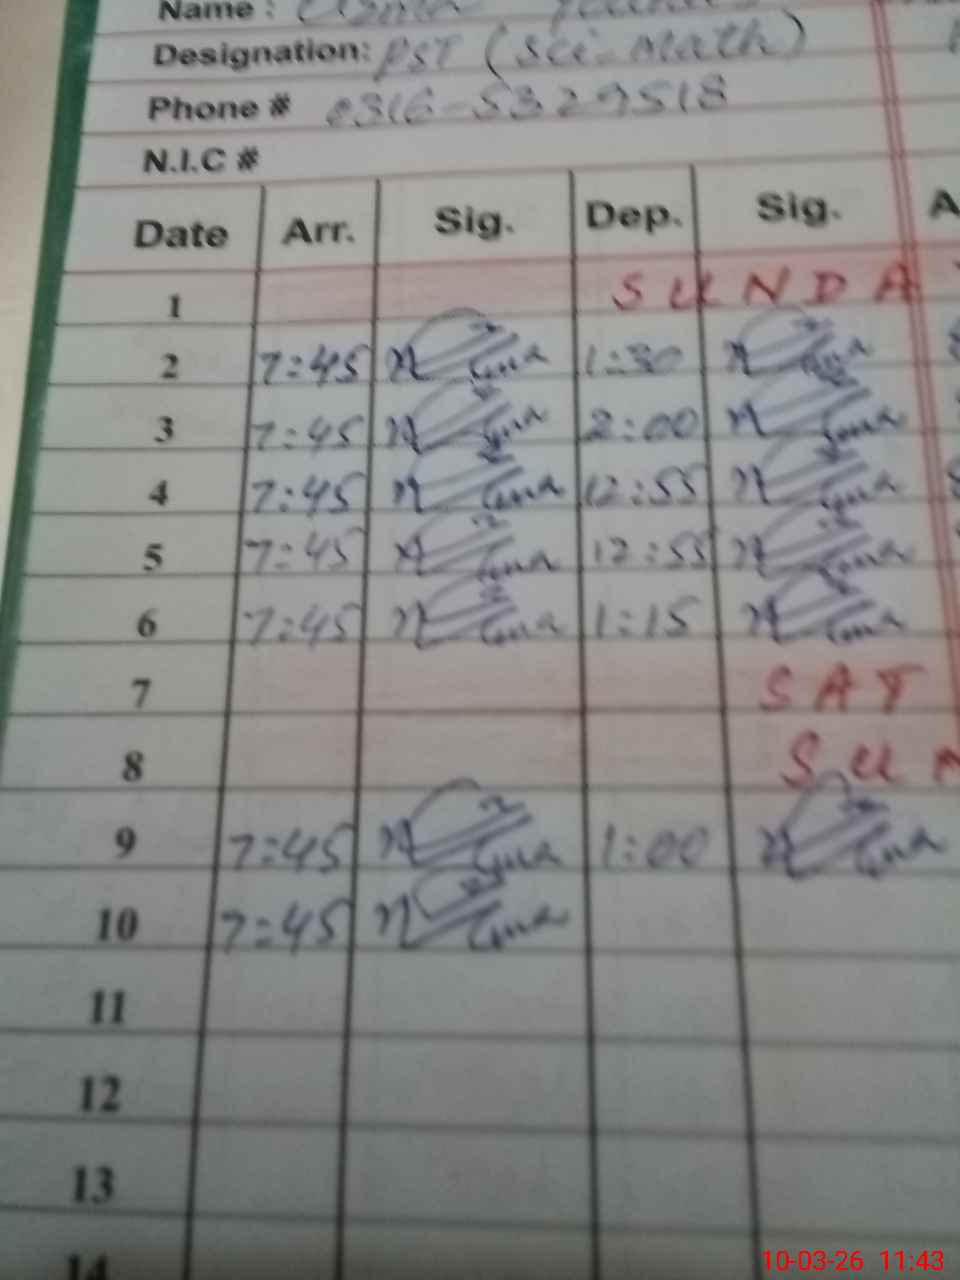 Name :
Designation: PST (Sci-Math)
Phone # 0316-5329518
N.I.C #
Date Arr. Sig. Dep. Sig. A
1 SUNDA
2 7:45 1:30
3 7:45 2:00
4 7:45 12:55
5 7:45 12:55
6 7:45 1:15
7 SAT
8 SUN
9 7:45 1:00
10 7:45
11
12
13
14
10-03-26 11:43